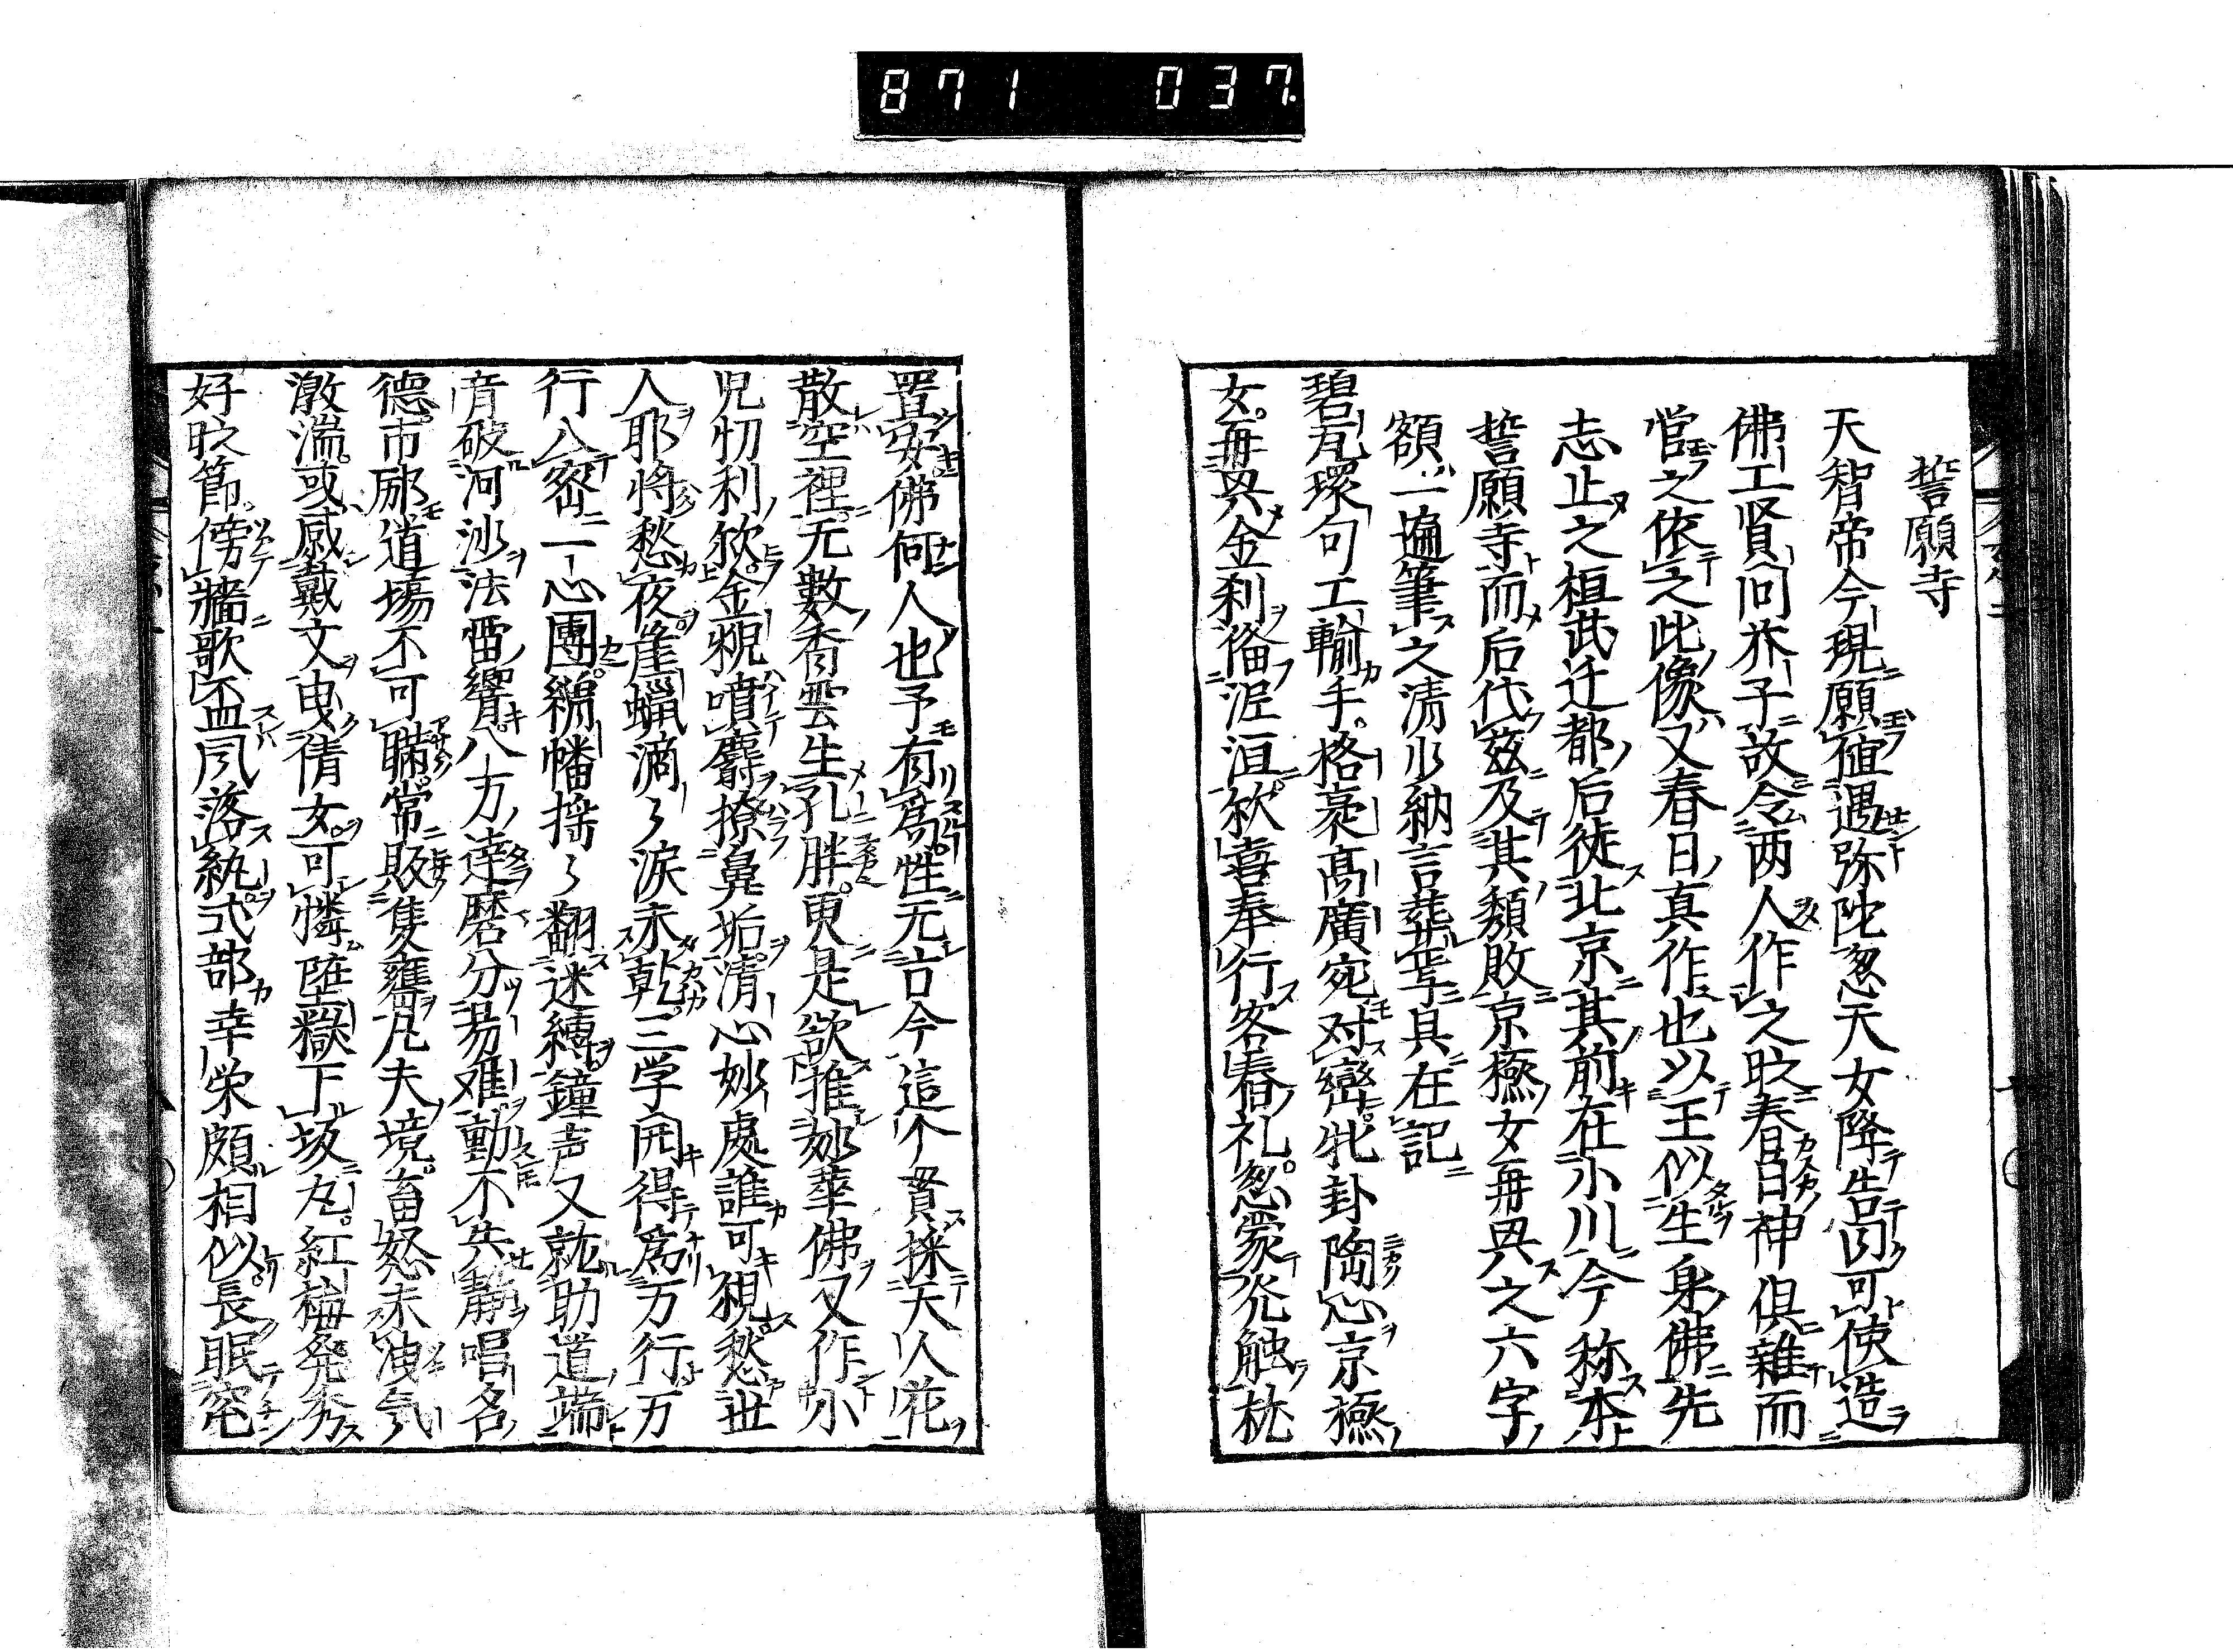 871 037
誓願寺
天智帝今現願値遇弥陀忽天女降告曰可使造
佛工賢問芥子故令两人作之时春日神俱雜而
営之依之此像又春日真作也以王似生身佛先
志止之桓武迁都后徒北京其前在小川今称本
誓願寺而后代茲及其頽敗京極女毋 之六字
額一遍筆之清少納言葬 具在記
碧瓦環句工輸手格 髙廣宛对巒牝卦陶心京極
女毋 金刹 涅洹欤喜奉行客春礼忽蒙 触枕
置安佛何人也予有爲性无古今這个貫採天人花
散空裡无數香雲生孔胖更是欲推 華佛又作小
児忉利欤金猊噴麝撩鼻垢清心妙處誰可視愁世
人耶將愁夜 蝋滴々淚未乾三学開得爲万行万
行八宻一心團 幡揺々翻迷縛鐘声又就助道端
音破河沙法雷響八方達磨分易难動不失静唱名
德市 道塲不可 常販隻 凡夫境畜怒未洩気
激湍或感戴文曳倩女可憐堕嶽下坂丸紅梅発秀
好时節傍牆歌 風落 式部幸栄頗相似長眠窀